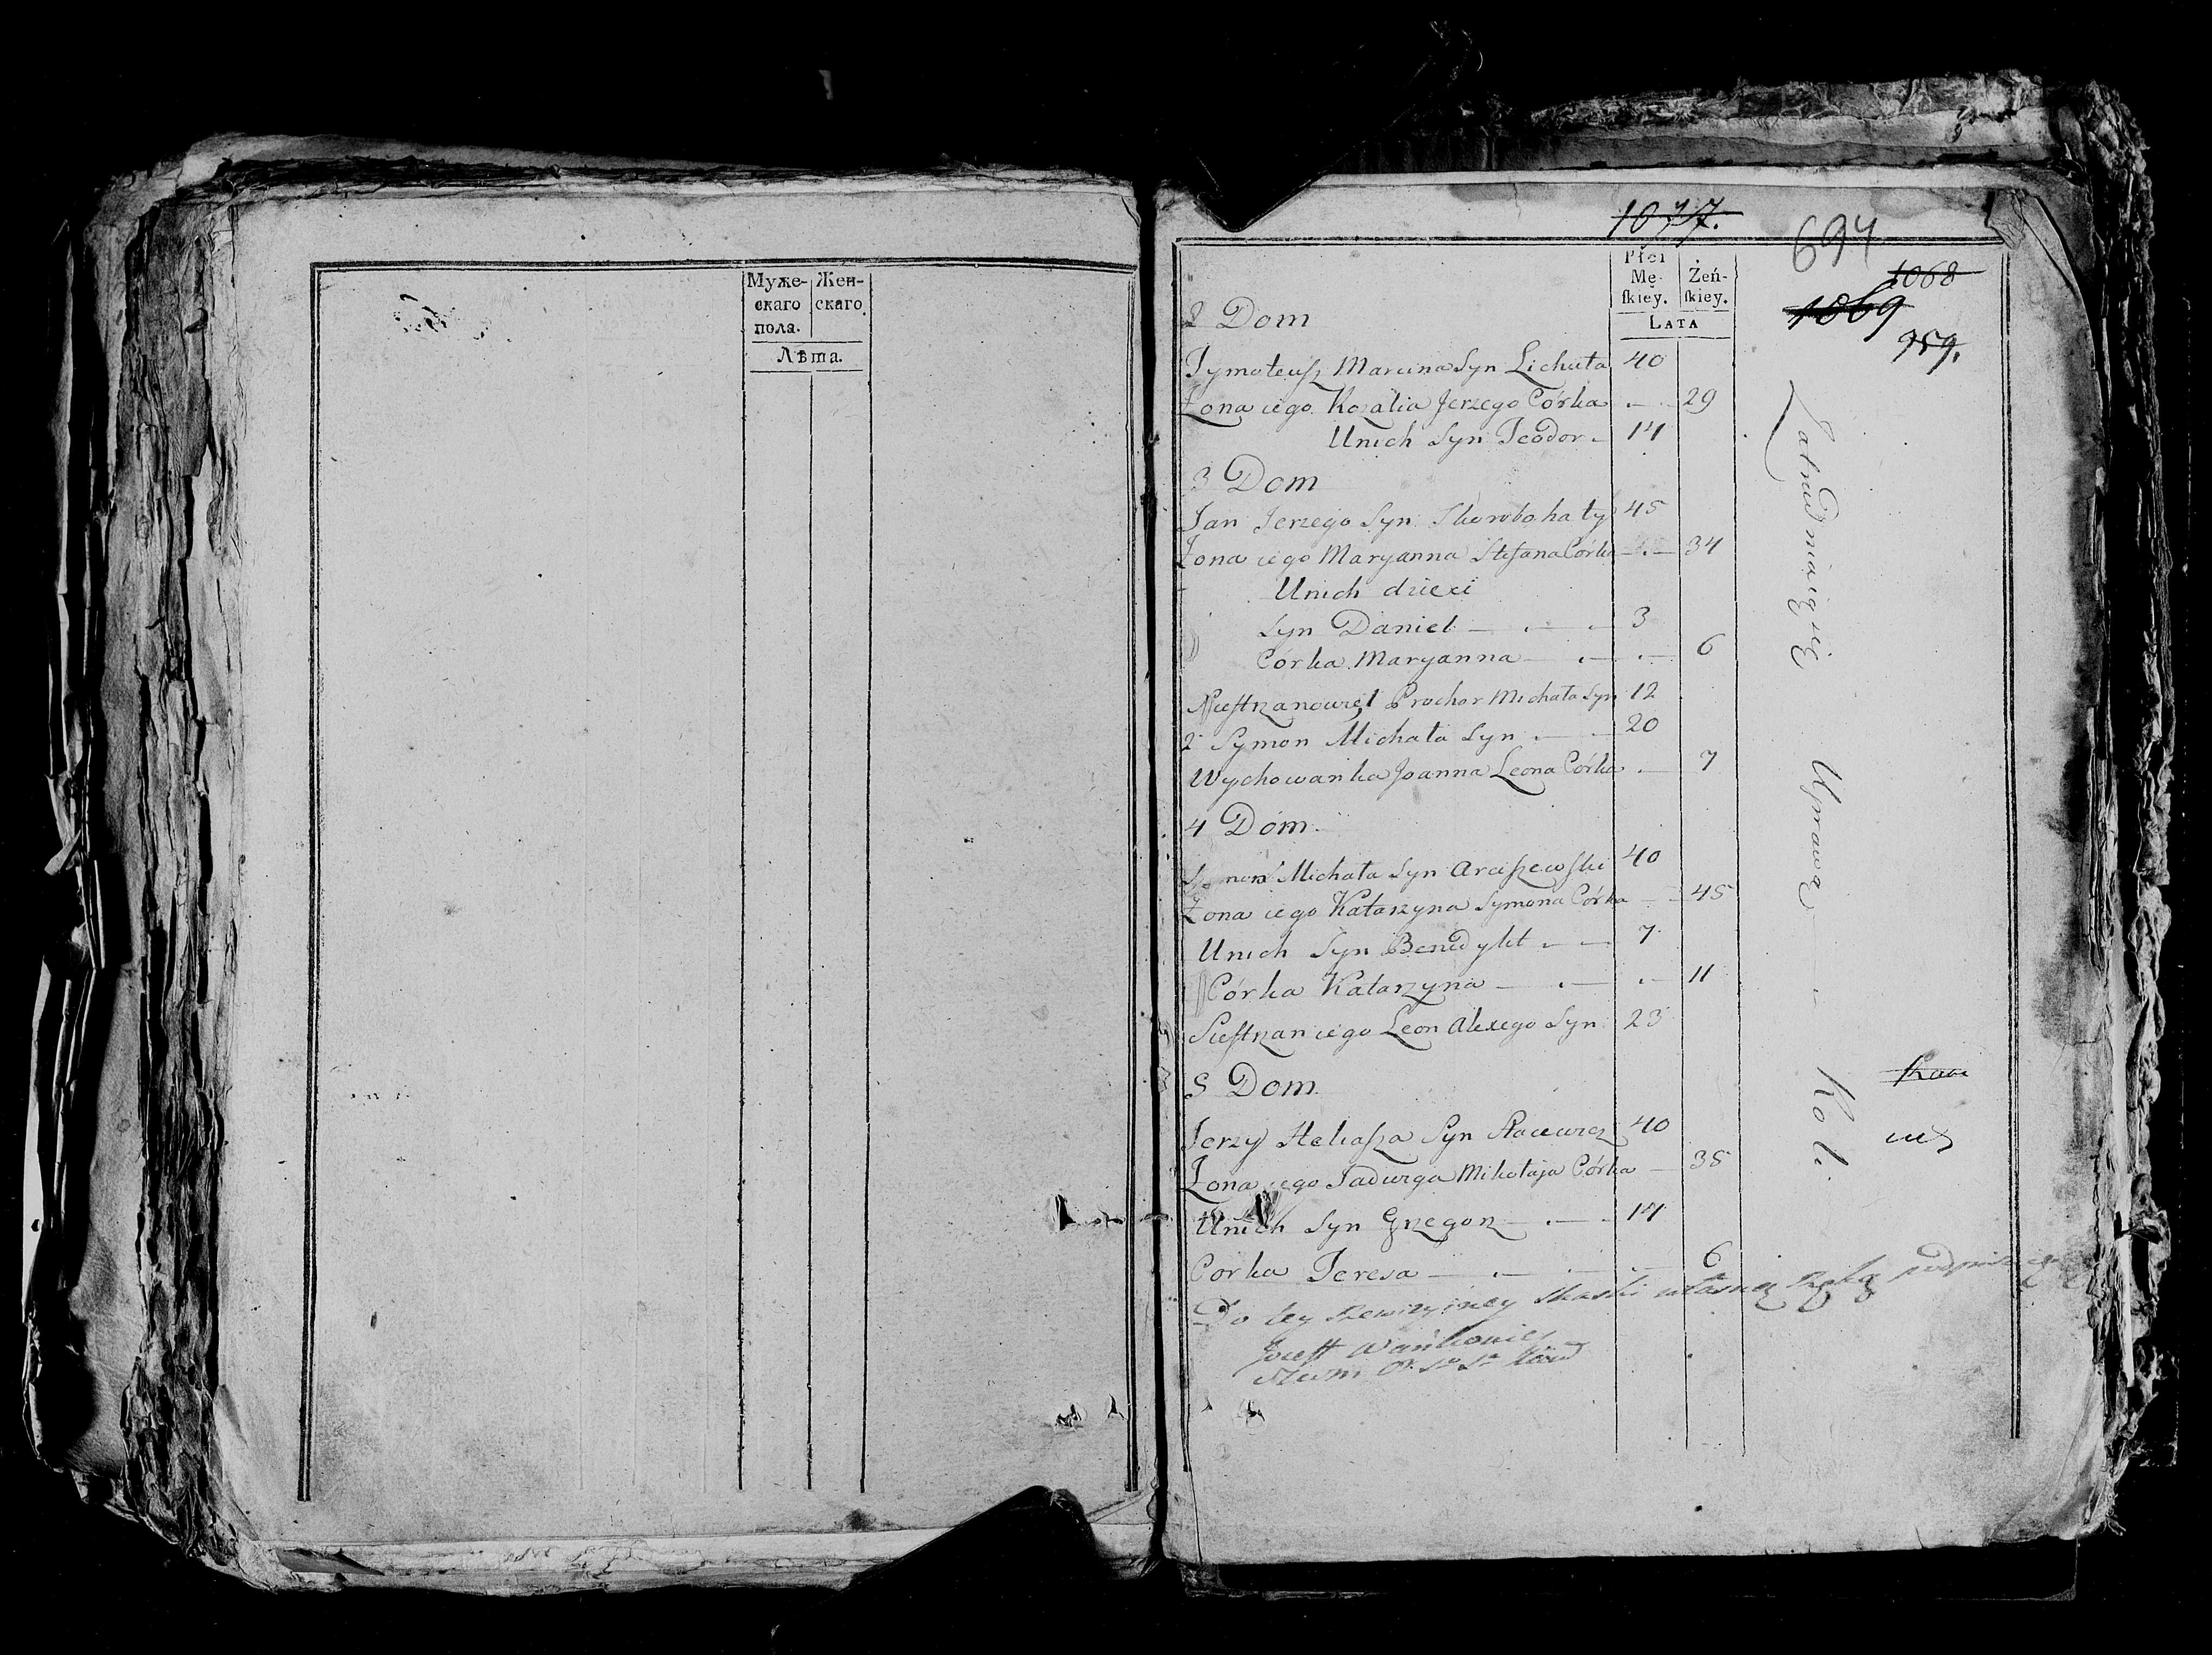 Муже- Жен-
скаго скаго.
пола.
Лѣта.
1077.
694
1068
1069
959.
Płci
Mę- Żeń-
ſkiey. ſkiey.
LATA
2 Dom
Tymoteuſz Marcina Syn Lichuta 40
Żona iego Rozalia Jerzego Córka 29
Unich Syn Teodor 14
3 Dom
Jan Jerzego Syn Skorobohaty 45
Żona iego Maryanna Stefana Córka 34
Unich dzieci
Syn Daniel 3
Córka Maryanna 6
Prochor Michała Syn 12
2 Symon Michała Syn 20
Wychowanka Joanna Leona Córka 7
4 Dom
Michała Syn 40
Żona iego Katarzyna Symona Córka 45
Unich Syn Benedykt 7
Córka Katarzyna 11
Sieſtrzan iego Leon Alexego Syn 23
5 Dom
Jerzy Heliaſza Syn 40
Żona iego Jadwiga Mikołaja Córka 35
Unich Syn Grzegorz 14
Corka Teresa 6
Do tey Rewizyiney Skaski własną ręką
Jozeff Wańkowicz
Zatrudniaią się Uprawą Roli